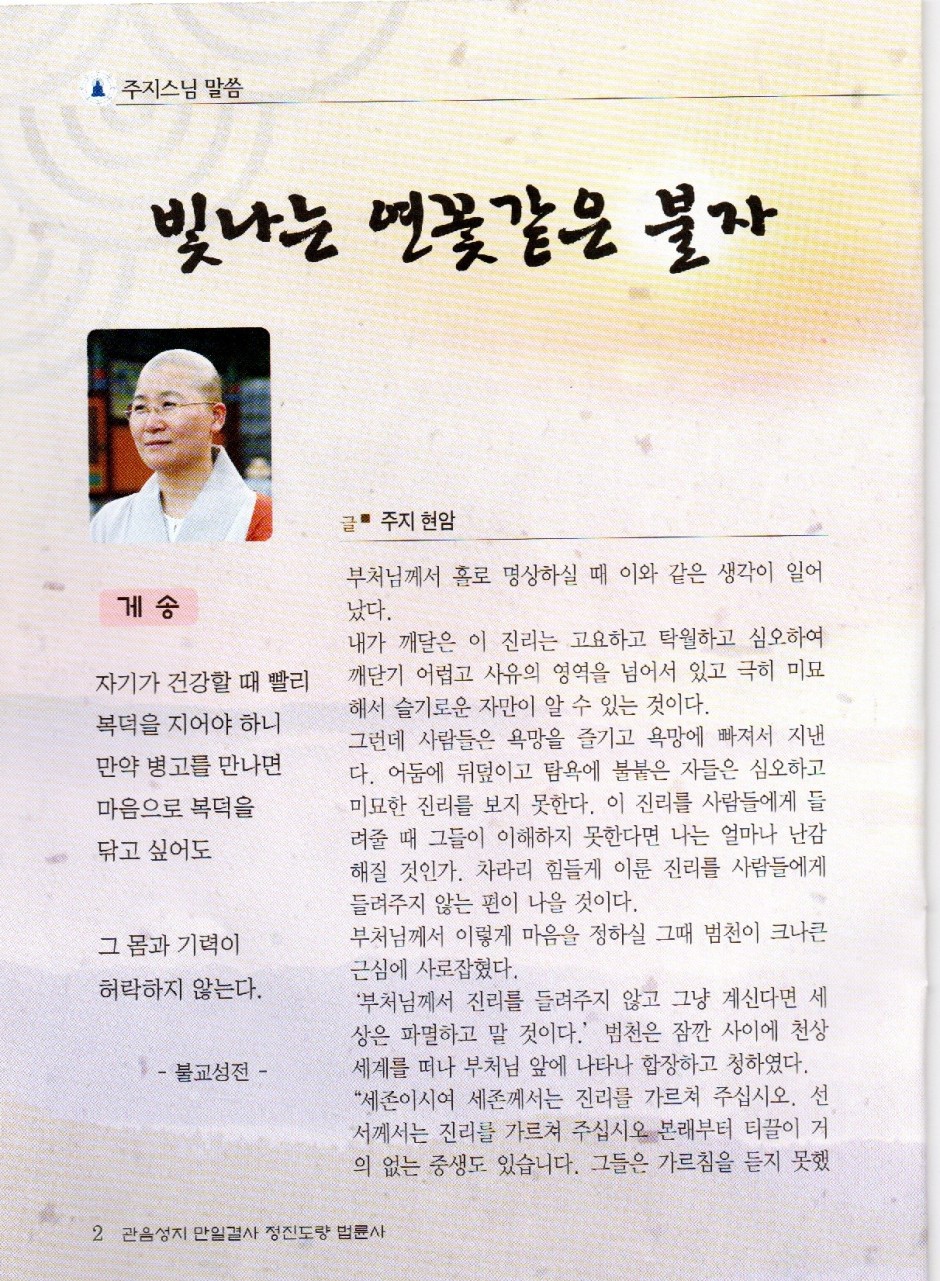 주지스님 말씀
빛나는 연꽃같은 불자
글 ■ 주지 현암
게 송
자기가 건강할 때 빨리
복덕을 지어야 하니
만약 병고를 만나면
마음으로 복덕을
닦고 싶어도
그 몸과 기력이
허락하지 않는다.
- 불교성전 -
부처님께서 홀로 명상하실 때 이와 같은 생각이 일어
났다.
내가 깨달은 이 진리는 고요하고 탁월하고 심오하여
깨닫기 어렵고 사유의 영역을 넘어서 있고 극히 미묘
해서 슬기로운 자만이 알 수 있는 것이다.
그런데 사람들은 욕망을 즐기고 욕망에 빠져서 지낸
다. 어둠에 뒤덮이고 탐욕에 불붙은 자들은 심오하고
미묘한 진리를 보지 못한다. 이 진리를 사람들에게 들
려줄 때 그들이 이해하지 못한다면 나는 얼마나 난감
해질 것인가. 차라리 힘들게 이룬 진리를 사람들에게
들려주지 않는 편이 나을 것이다.
부처님께서 이렇게 마음을 정하실 그때 범천이 크나큰
근심에 사로잡혔다.
‘부처님께서 진리를 들려주지 않고 그냥 계신다면 세
상은 파멸하고 말 것이다.’ 범천은 잠깐 사이에 천상
세계를 떠나 부처님 앞에 나타나 합장하고 청하였다.
“세존이시여 세존께서는 진리를 가르쳐 주십시오. 선
서께서는 진리를 가르쳐 주십시오 본래부터 티끌이 거
의 없는 중생도 있습니다. 그들은 가르침을 듣지 못했
2 관음성지 만일결사 정진도량 법륜사